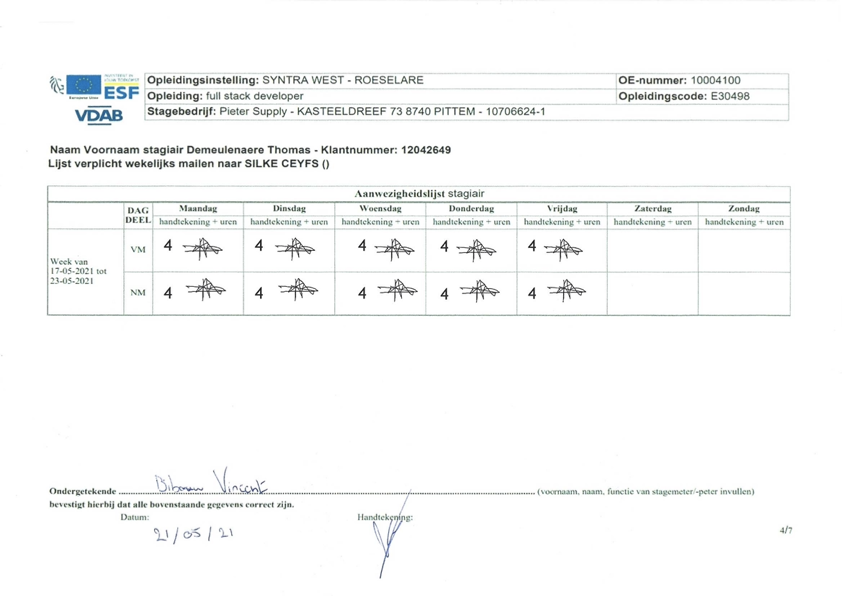 ESF
VDAB
Opleidingsinstelling: SYNTRA WEST - ROESELARE
OE-nummer: 10004100
Opleiding: full stack developer
Opleidingscode: E30498
Stagebedrijf: Pieter Supply - KASTEELDREEF 73 8740 PITTEM - 10706624-1
Naam Voornaam stagiair Demeulenaere Thomas - Klantnummer: 12042649
Lijst verplicht wekelijks mailen naar SILKE CEYFS ()
Aanwezigheidslijst stagiair
DAG DEEL Maandag Dinsdag Woensdag Donderdag Vrijdag Zaterdag Zondag
handtekening + uren handtekening + uren handtekening + uren handtekening + uren handtekening + uren handtekening + uren handtekening + uren
Week van
17-05-2021 tot
23-05-2021
VM 4 4 4 4 4
NM 4 4 4 4 4
Ondergetekende Vincent (voornaam, naam, functie van stagemeter/-peter invullen)
bevestigt hierbij dat alle bovenstaande gegevens correct zijn.
Datum: Handtekening:
21/05/21
4/7